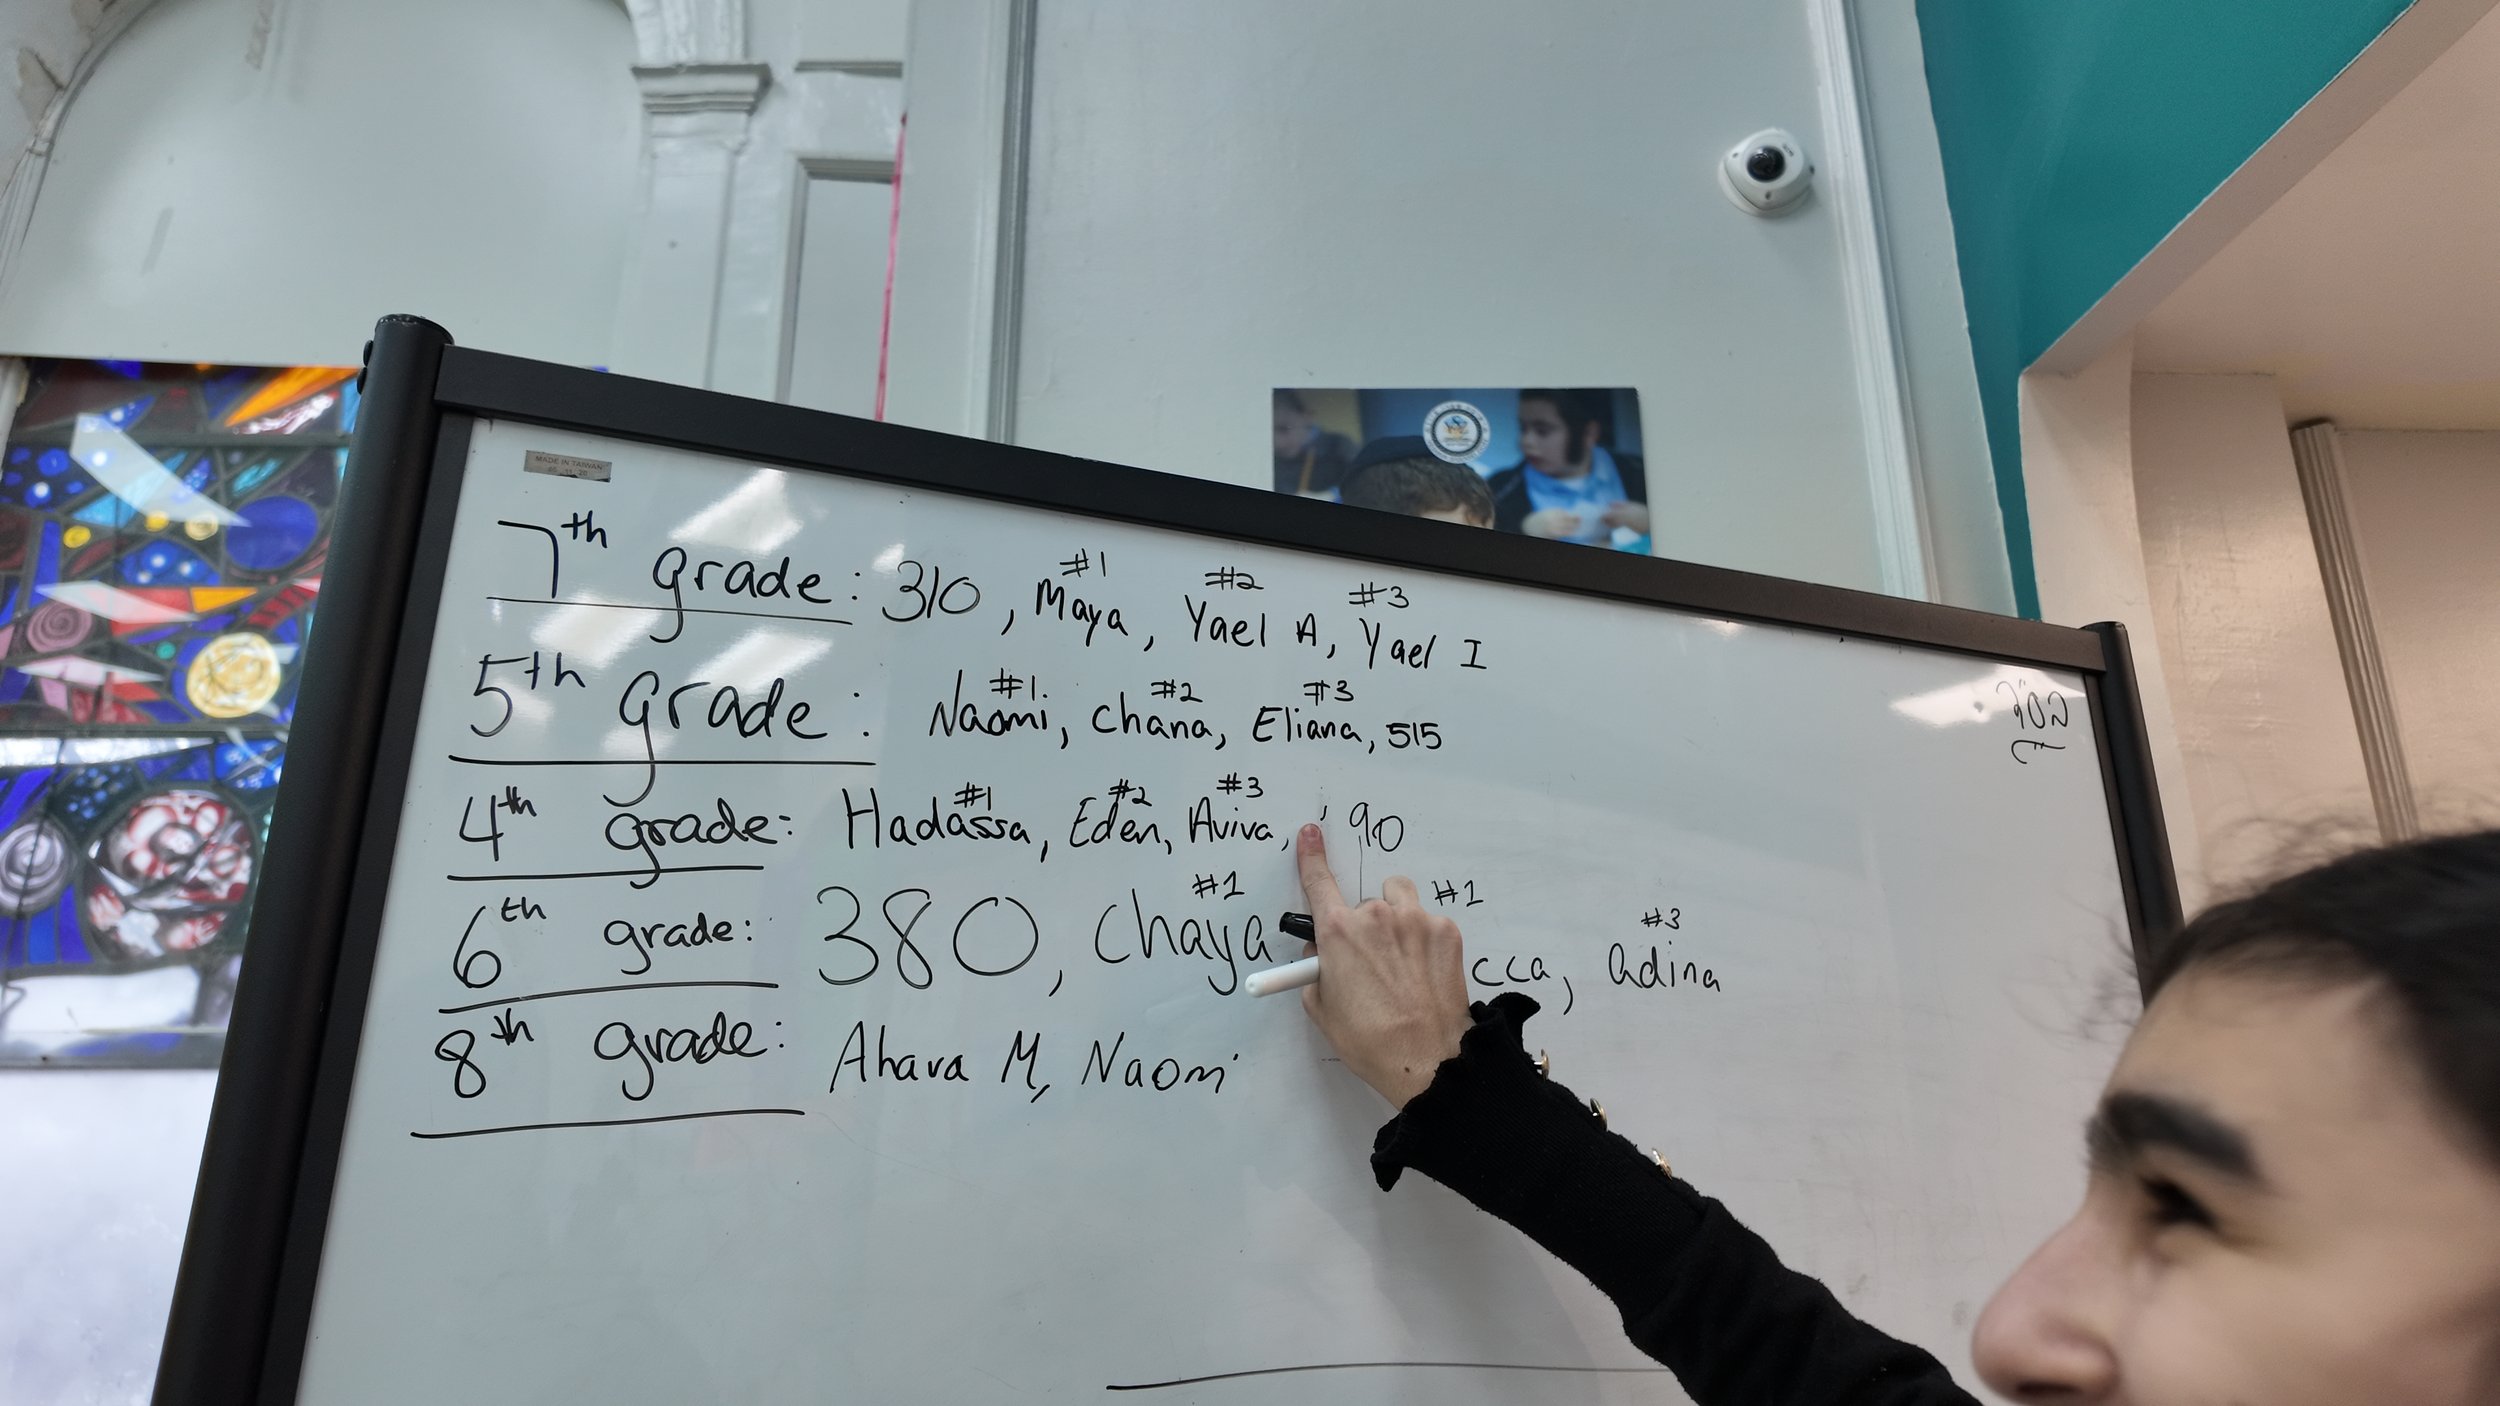 MADE IN TAIWAN
#1 #2 #3
7th grade: 310, Maya, Yael A, Yael I
#1 #2 #3
5th grade: Naomi, Chana, Eliana, 515
#1 #2 #3
4th grade: Hadassa, Eden, Aviva, 90
#1 #1 #3
6th grade: 380, Chaya cca, Adina
8th grade: Ahava M, Naomi